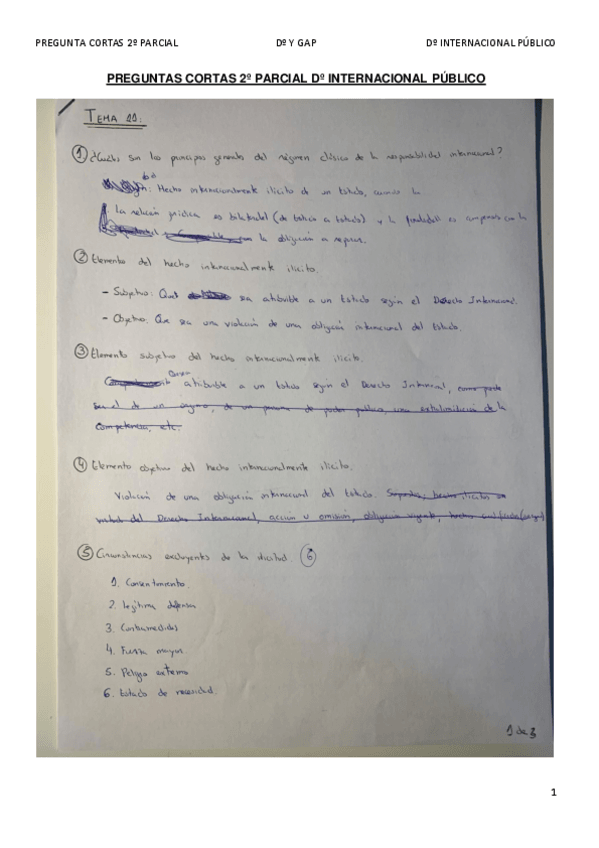 PREGUNTA CORTAS 2º PARCIAL Dº Y GAP Dº INTERNACIONAL PÚBLICO
PREGUNTAS CORTAS 2º PARCIAL Dº INTERNACIONAL PÚBLICO
TEMA 11:
① ¿Cuáles son los principios generales del régimen clásico de la responsabilidad internacional?
Hecho internacionalmente ilícito de un Estado,
La relación jurídica es bilateral (de Estado a Estado) y la
la obligación a reparar.
② Elementos del hecho internacionalmente ilícito.
- Subjetivo: Que sea atribuible a un Estado según el Derecho Internacional.
- Objetivo. Que sea una violación de una obligación internacional del Estado.
③ Elemento subjetivo del hecho internacionalmente ilícito.
atribuible a un Estado según el Derecho Internacional, como puede
ser el de un órgano, de una persona de poder público, una extralimitación de la
competencia, etc.
④ Elemento objetivo del hecho internacionalmente ilícito.
Violación de una obligación internacional del Estado.
del Derecho Internacional, acción u omisión, obligación vigente, hecho
⑤ Circunstancias excluyentes de la ilicitud. ⑥
1. Consentimiento.
2. Legítima defensa
3. Contramedidas
4. Fuerza mayor
5. Peligro extremo
6. Estado de necesidad.
1 de 3
1